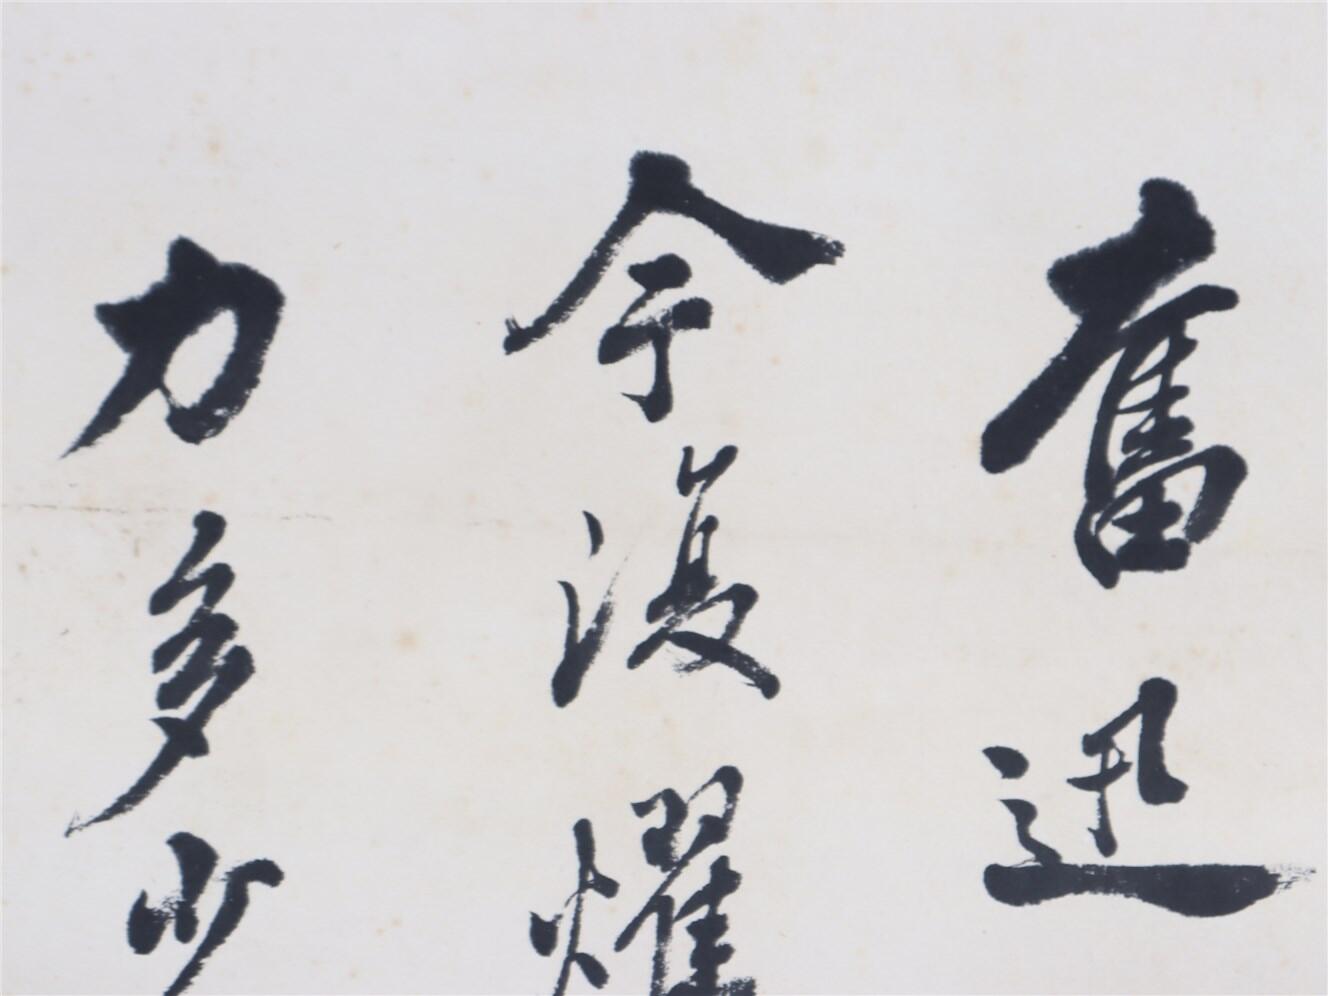 奮迅
今復耀
力多少